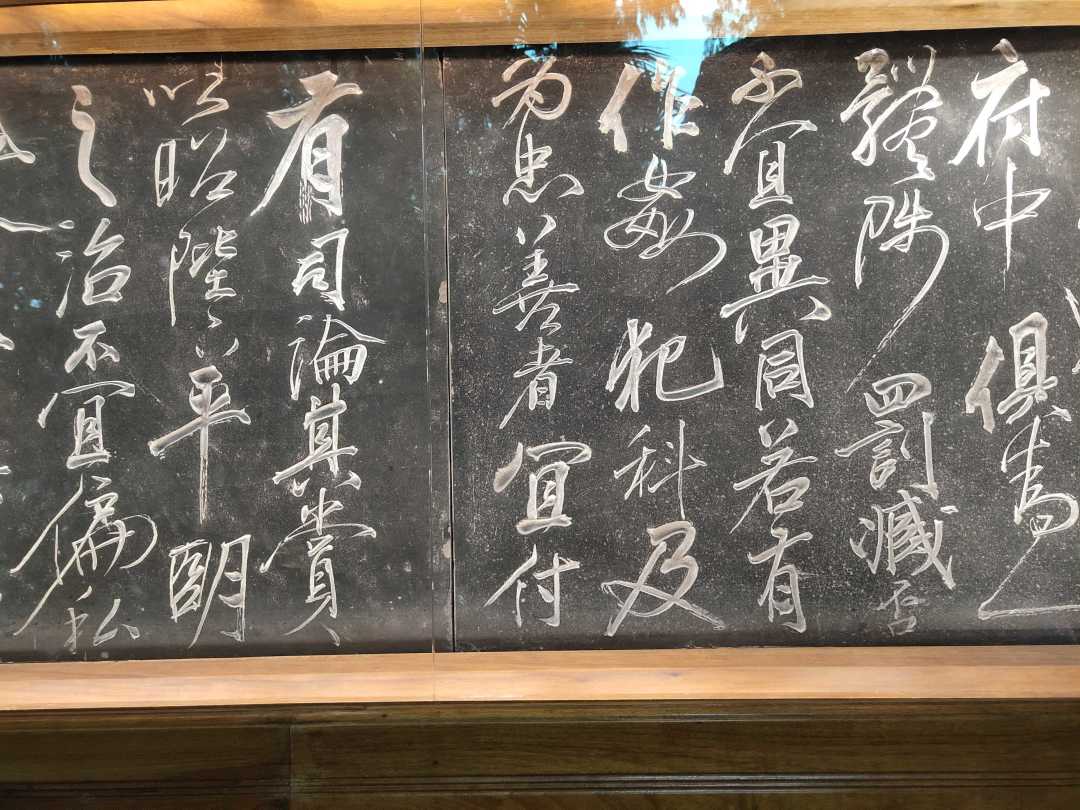 府中俱為一
體陟罰臧否
不宜異同若有
作姦犯科及
為忠善者宜付
有司論其賞
以昭陛下平明
之治不宜偏私